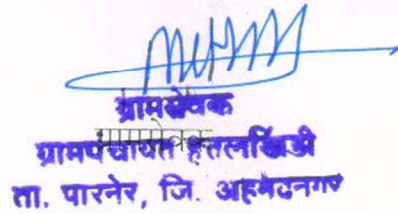 ग्रामसेवक
ग्रामसेवक
ग्रामपंचायत
ता. पारनेर, जि. अहमदनगर